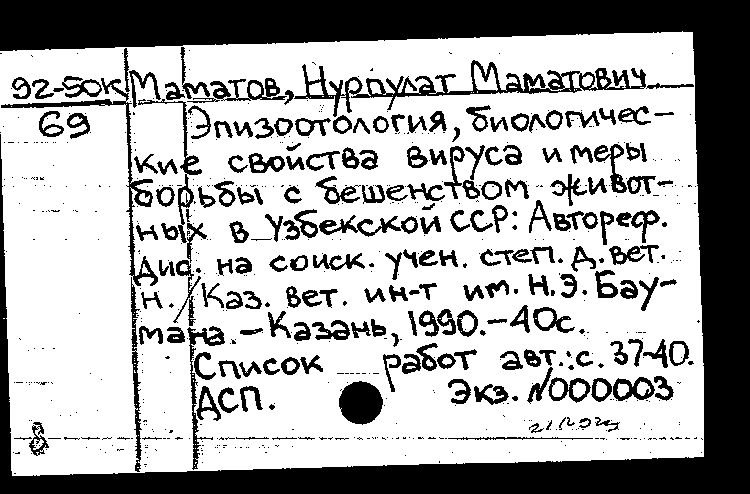 92-50к Маматов, Нурпулат Маматович
69 Эпизоотология, биологичес-
кие свойства вируса и меры
борьбы с бешенством живот-
ных в Узбекской ССР: Автореф.
дис. на соиск. учен. степ. д. вет.
н. / Каз. вет. ин-т им. Н.Э. Бау-
мана. – Казань, 1990. – 40с.
Список работ авт.: с. 37-40.
ДСП. Экз. N000003